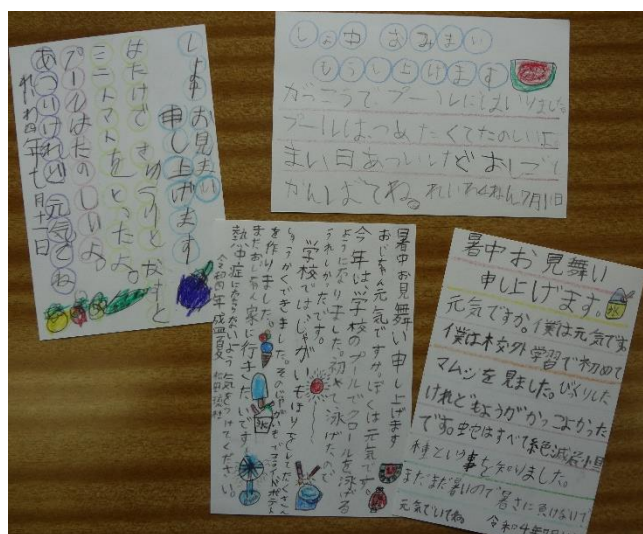 しょ中お見まい
申し上げます
はたけで きゅうりと なすと
ミニトマトを とったよ。
プールはたのしいよ。
あついけれど 元気でね
れいわ四年七月十一日
しょ中 おみまい
もうし上げます
がっこうでプールにはいりました。
プールは、つめたくてたのしいよ
まい日あついけどおしごと
がんばてね。れいわ4ねん7月11日
暑中お見舞い申し上げます
おじちゃん元気ですか。ぼくは元気です。
今年は、学校のプールでクロールを泳げる
ようになりました。初めて泳げたので
うれしかったです。
学校ではじゃがいもほりをしてたくさん
しゅうかくできました。そのじゃがいもでフライドポテト
を作りました。
またおじちゃん家に行きたいです。
熱中症にならないよう気をつけてください。
令和四年 盛夏
氷
暑中お見舞い
申し上げます。
氷
元気ですか。僕は元気です
僕は校外学習で初めて
マムシを見ました。びっくりした
けれどもようがかっこよかった
です。蛇はすべて絶滅危惧
種という事を知りました。
まだまだ暑いので暑さに負けないで
元気でいてね。
令和4年7月